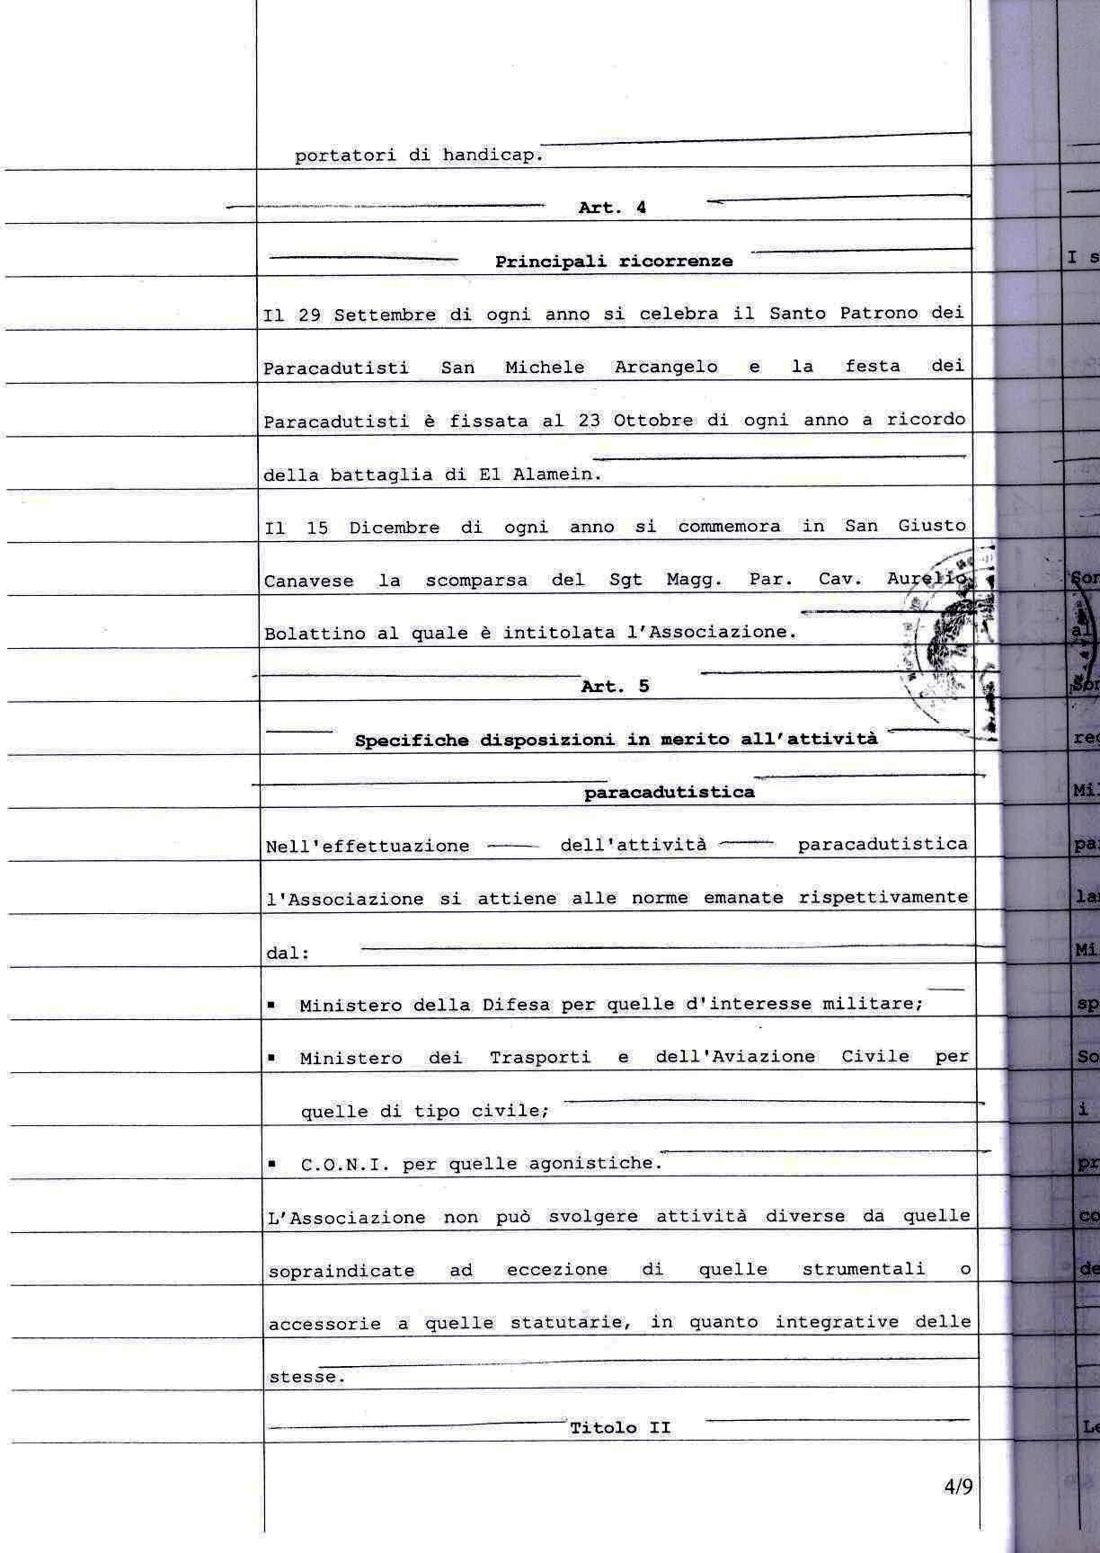 portatori di handicap.
Art. 4
Principali ricorrenze
Il 29 Settembre di ogni anno si celebra il Santo Patrono dei
Paracadutisti San Michele Arcangelo e la festa dei
Paracadutisti è fissata al 23 Ottobre di ogni anno a ricordo
della battaglia di El Alamein.
Il 15 Dicembre di ogni anno si commemora in San Giusto
Canavese la scomparsa del Sgt Magg. Par. Cav. Aurelio
Bolattino al quale è intitolata l'Associazione.
Art. 5
Specifiche disposizioni in merito all'attività
paracadutistica
Nell'effettuazione dell'attività paracadutistica
l'Associazione si attiene alle norme emanate rispettivamente
dal:
▪ Ministero della Difesa per quelle d'interesse militare;
▪ Ministero dei Trasporti e dell'Aviazione Civile per
quelle di tipo civile;
▪ C.O.N.I. per quelle agonistiche.
L'Associazione non può svolgere attività diverse da quelle
sopraindicate ad eccezione di quelle strumentali o
accessorie a quelle statutarie, in quanto integrative delle
stesse.
Titolo II
4/9